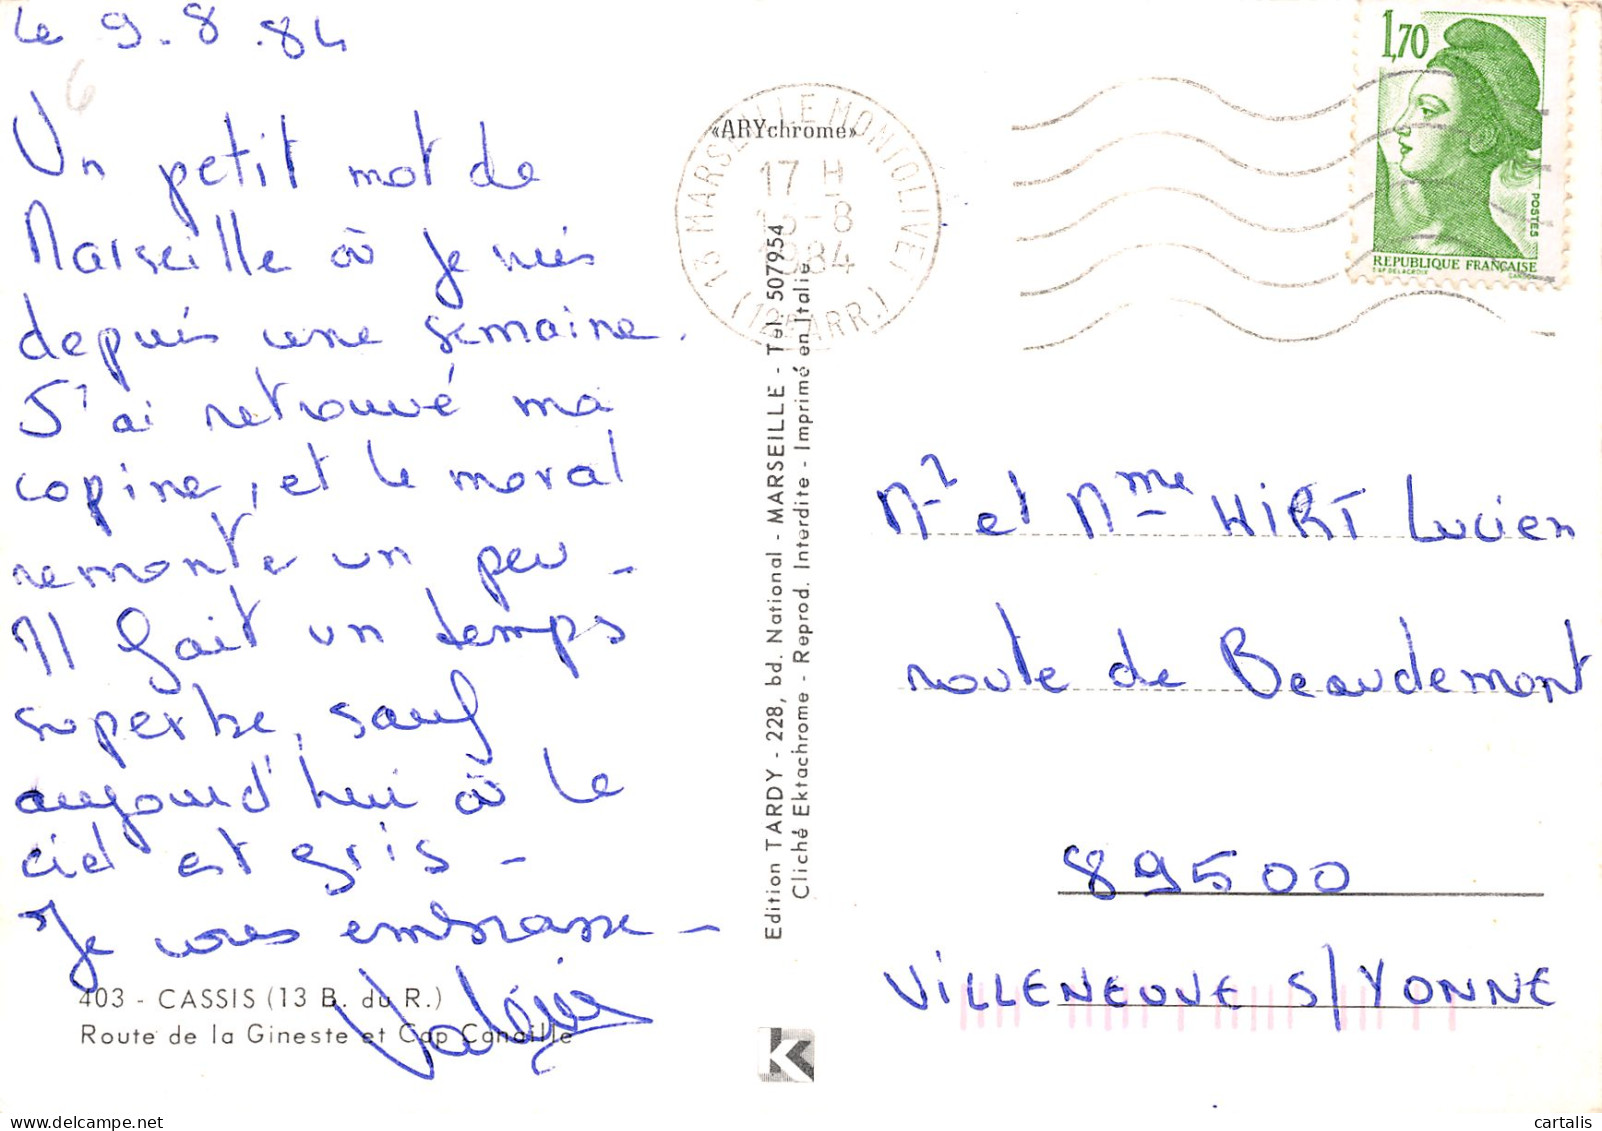 Le 9.8.84
6
Un petit mot de
Marseille où je suis
depuis une semaine.
J'ai retrouvé ma
copine, et le moral
remonte un peu -
Il fait un temps
superbe, sauf
aujourd'hui où le
ciel est gris -
Je vous embrasse -
Valérie
403 - CASSIS (13 B. du R.)
Route de la Gineste et Cap Canaille
«ARYchrome»
13 MARSEILLE MONTOLIVET
17 H
-8
1984
(12E ARR.)
Edition TARDY - 228, bd. National - MARSEILLE - Tél. 507954
Cliché Ektachrome - Reprod. Interdite - Imprimé en Italie
K
1,70
POSTES
REPUBLIQUE FRANÇAISE
D'AP DELACROIX
Mr et Mme HIRT Lucien
route de Beaudemont
89500
VILLENEUVE S/YONNE
cartalis